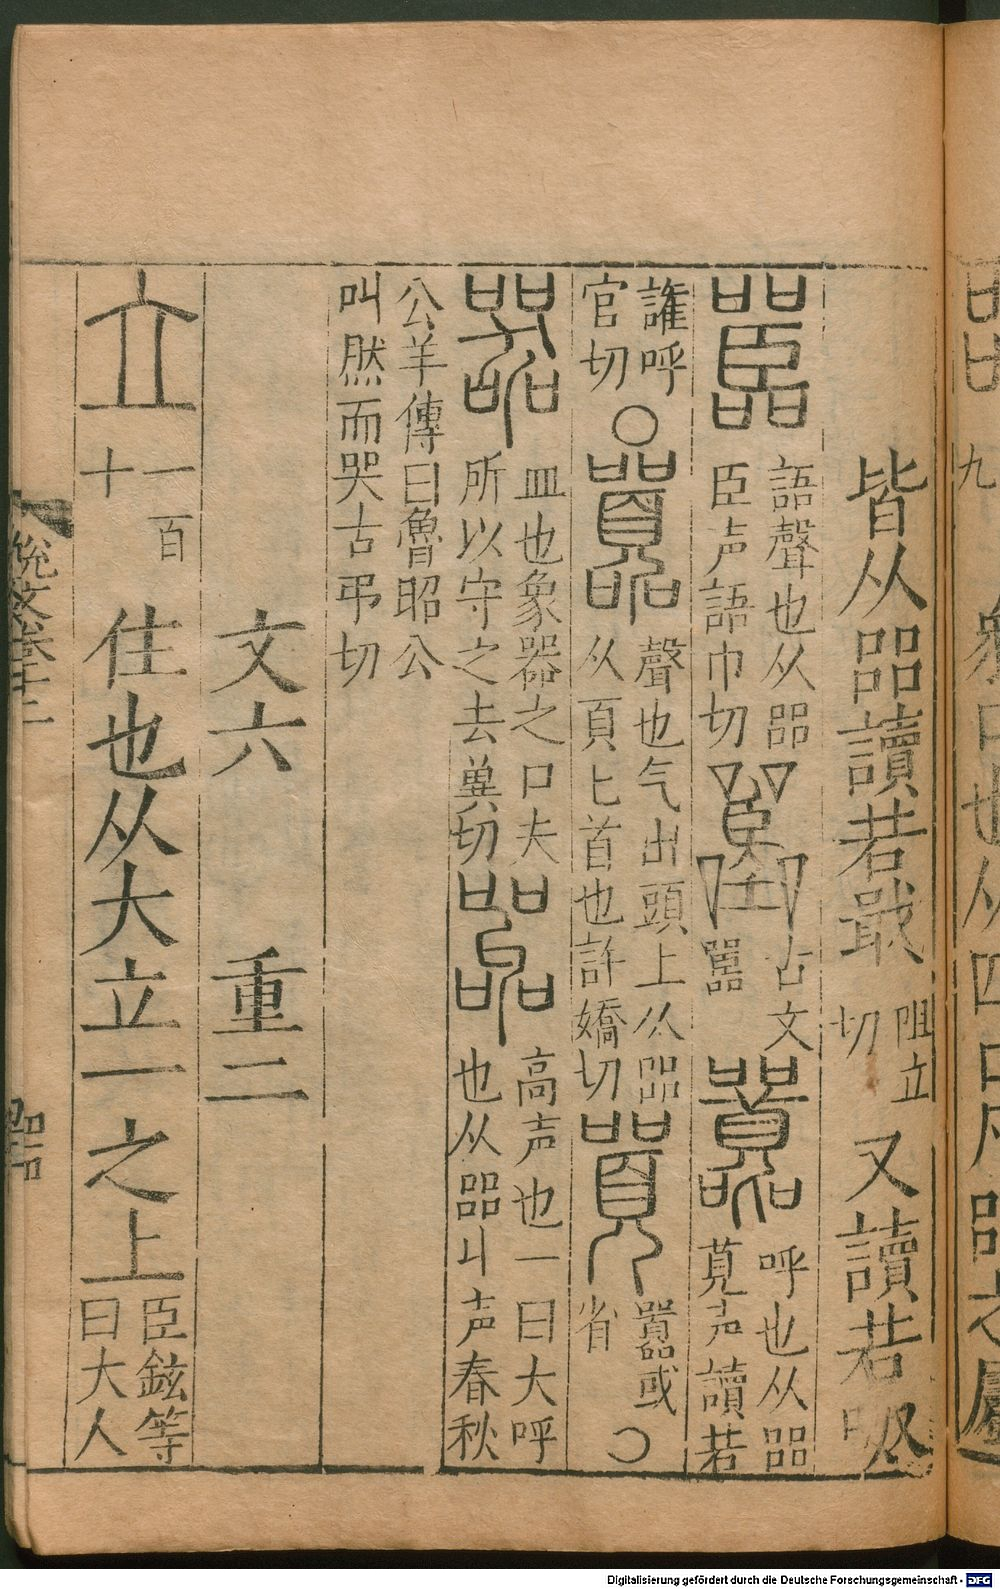 皆从㗊讀若戢 阻立切 又讀若呶
嚚 語聲也从㗊臣声語巾切 古文嚚 嚻 呼也从㗊萈声讀若
讙呼官切○囂 聲也气出頭上从㗊从頁頁首也許嬌切 囂或省○
器 皿也象器之口犬所以守之去冀切 嘂 高声也一曰大呼也从㗊丩声春秋
公羊傳曰魯昭公叫然而哭古弔切
文六 重二
立 一百十 住也从大立一之上 臣鉉等曰大人
Digitalisierung gefördert durch die Deutsche Forschungsgemeinschaft - DFG